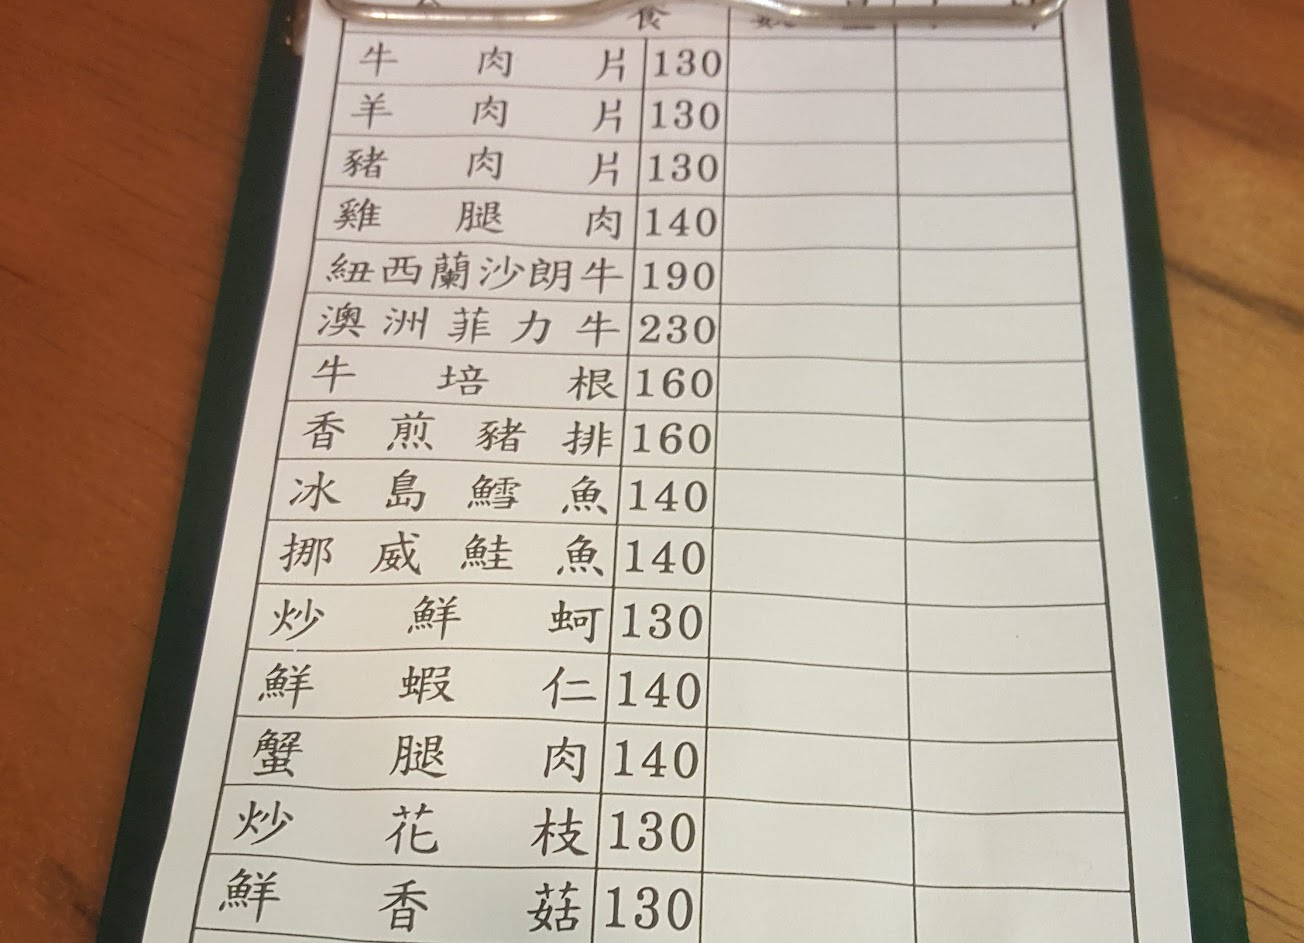 食
牛肉片 130
羊肉片 130
豬肉片 130
雞腿肉 140
紐西蘭沙朗牛 190
澳洲菲力牛 230
牛培根 160
香煎豬排 160
冰島鱈魚 140
挪威鮭魚 140
炒鮮蚵 130
鮮蝦仁 140
蟹腿肉 140
炒花枝 130
鮮香菇 130